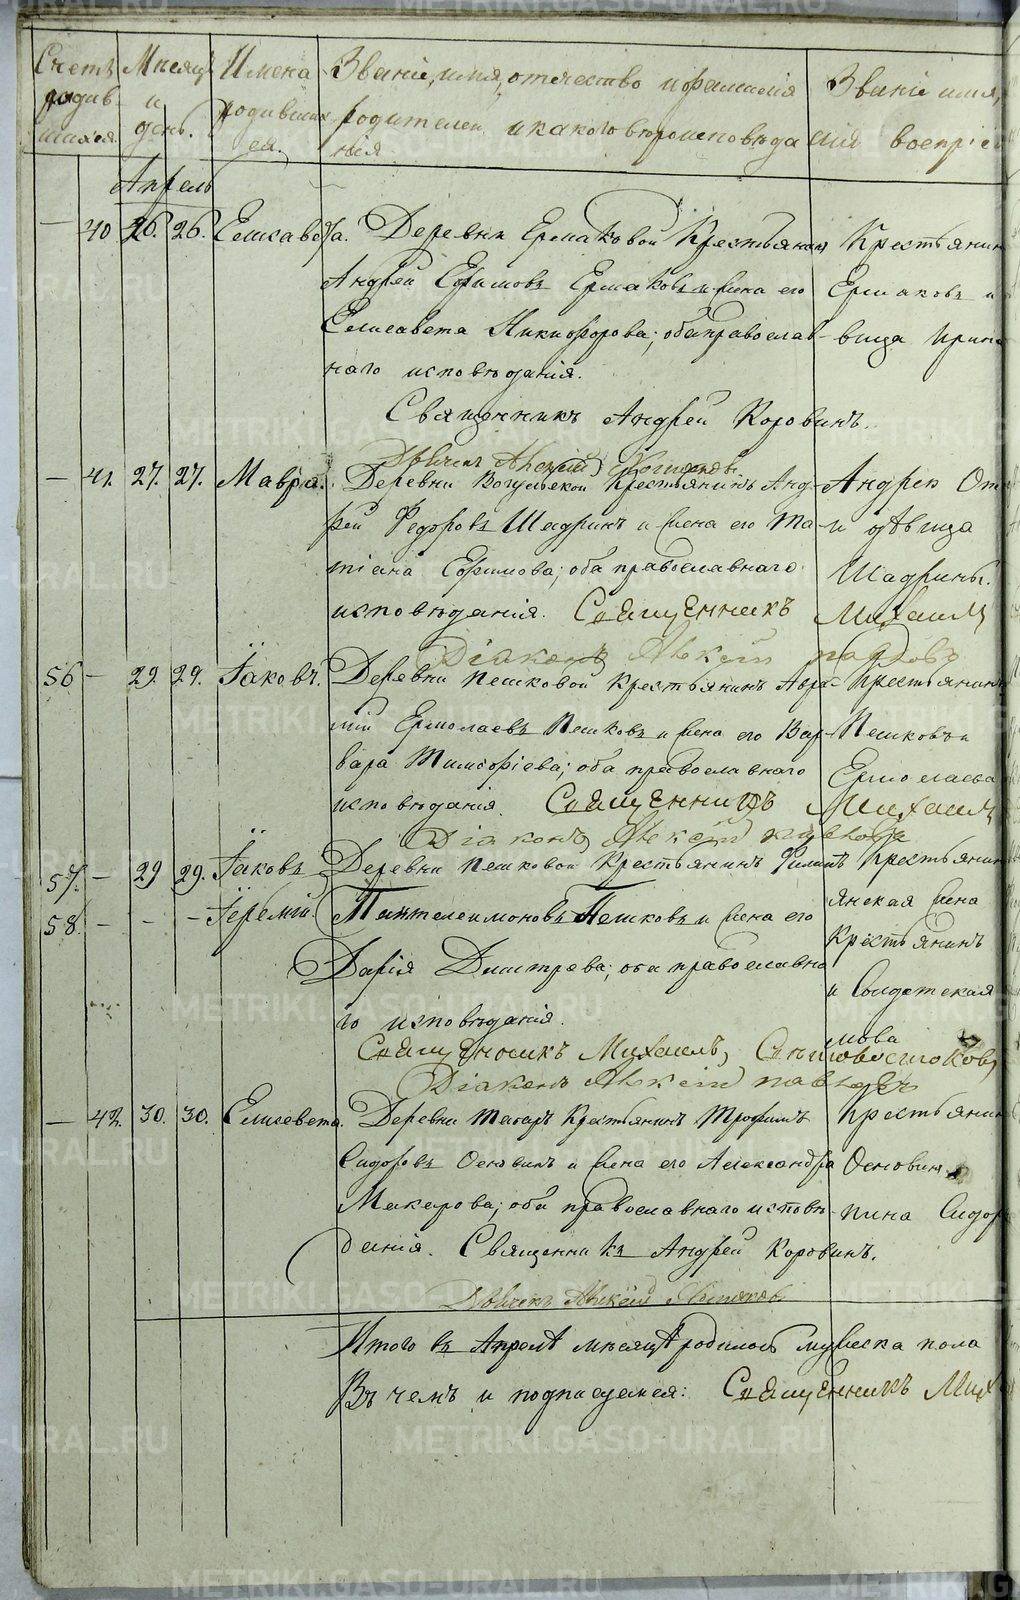 Счетъ родившихся
Мѣсяцъ и день.
Имена родившихся.
Званіе, имя, отчество и фамилія родителей, и какого вѣроисповѣданія
Званіе имя,
Апрель
— 40 26. 26. Елисавета. Деревни Ермаковой Крестьянинъ
Андрей Ефимовъ Ермаковъ и жена его
Елисавета Никифорова; оба православ-
наго исповѣданія.
Священникъ Андрей Коровинъ.
Крестьянинъ
Ермаковъ и
вица Ирина
— 41. 27. 27. Мавра. Деревни Вогульской Крестьянинъ Анд-
рей Федоровъ Шадринъ и жена его Та-
тіана Ефимова; оба православнаго
исповѣданія. Священникъ Михаилъ
Діаконъ Алексѣй Павловъ
Андрей
и дѣвица
Шадрины.
56 — 29 29. Іаковъ. Деревни Пешковой Крестьянинъ Авра-
мій Ермолаевъ Пешковъ и жена его Вар-
вара Тимофіева; оба православнаго
исповѣданія. Священникъ Михаилъ
Діаконъ Алексѣй Павловъ
Крестьянинъ
Пешковъ и
Ермолаева
57. — 29 29. Іаковъ Деревни Пешковой Крестьянинъ Филипъ
58 — - - Іеремій Пантелеимоновъ Пешковъ и жена его
Дарія Димтрева; оба православна
го исповѣданія.
Священникъ Михаилъ
Діаконъ Алексѣй Павловъ
Крестьянин
янская жена
Крестьянинъ
и Солдатская
мова
— 42. 30. 30. Елисавета. Деревни Крестьянинъ Трофимъ
Сидоровъ Осовинъ и жена его Александра
Макарова; оба православнаго исповѣ-
данія. Священникъ Андрей Коровинъ.
Крестьянинъ
Сидор
Итого въ Апрелѣ мѣсяцѣ родилось мужеска пола
Въ чемъ и подписуемся: Священникъ Мих
METRIKI.GASO-URAL.RU